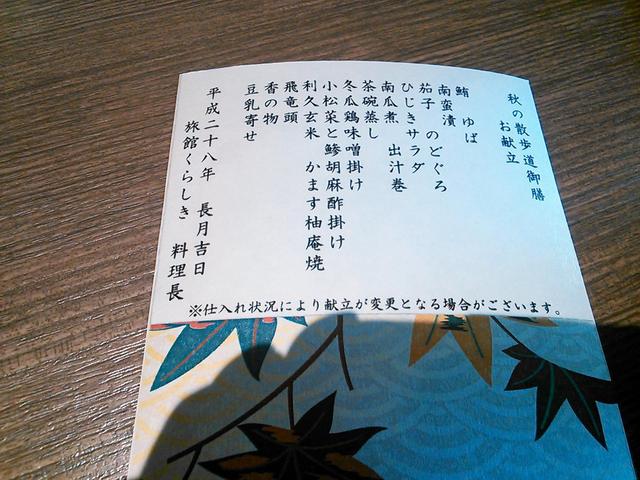 秋の散歩道御膳
お献立
鮪　ゆば
南蛮漬
茄子　のどぐろ
ひじきサラダ
南瓜煮　出汁巻
茶碗蒸し
冬瓜鶏味噌掛け
小松菜と鯵胡麻酢掛け
利久玄米　かます柚庵焼
飛竜頭
香の物
豆乳寄せ
平成二十八年　長月吉日
旅館くらしき　料理長
※仕入れ状況により献立が変更となる場合がございます。